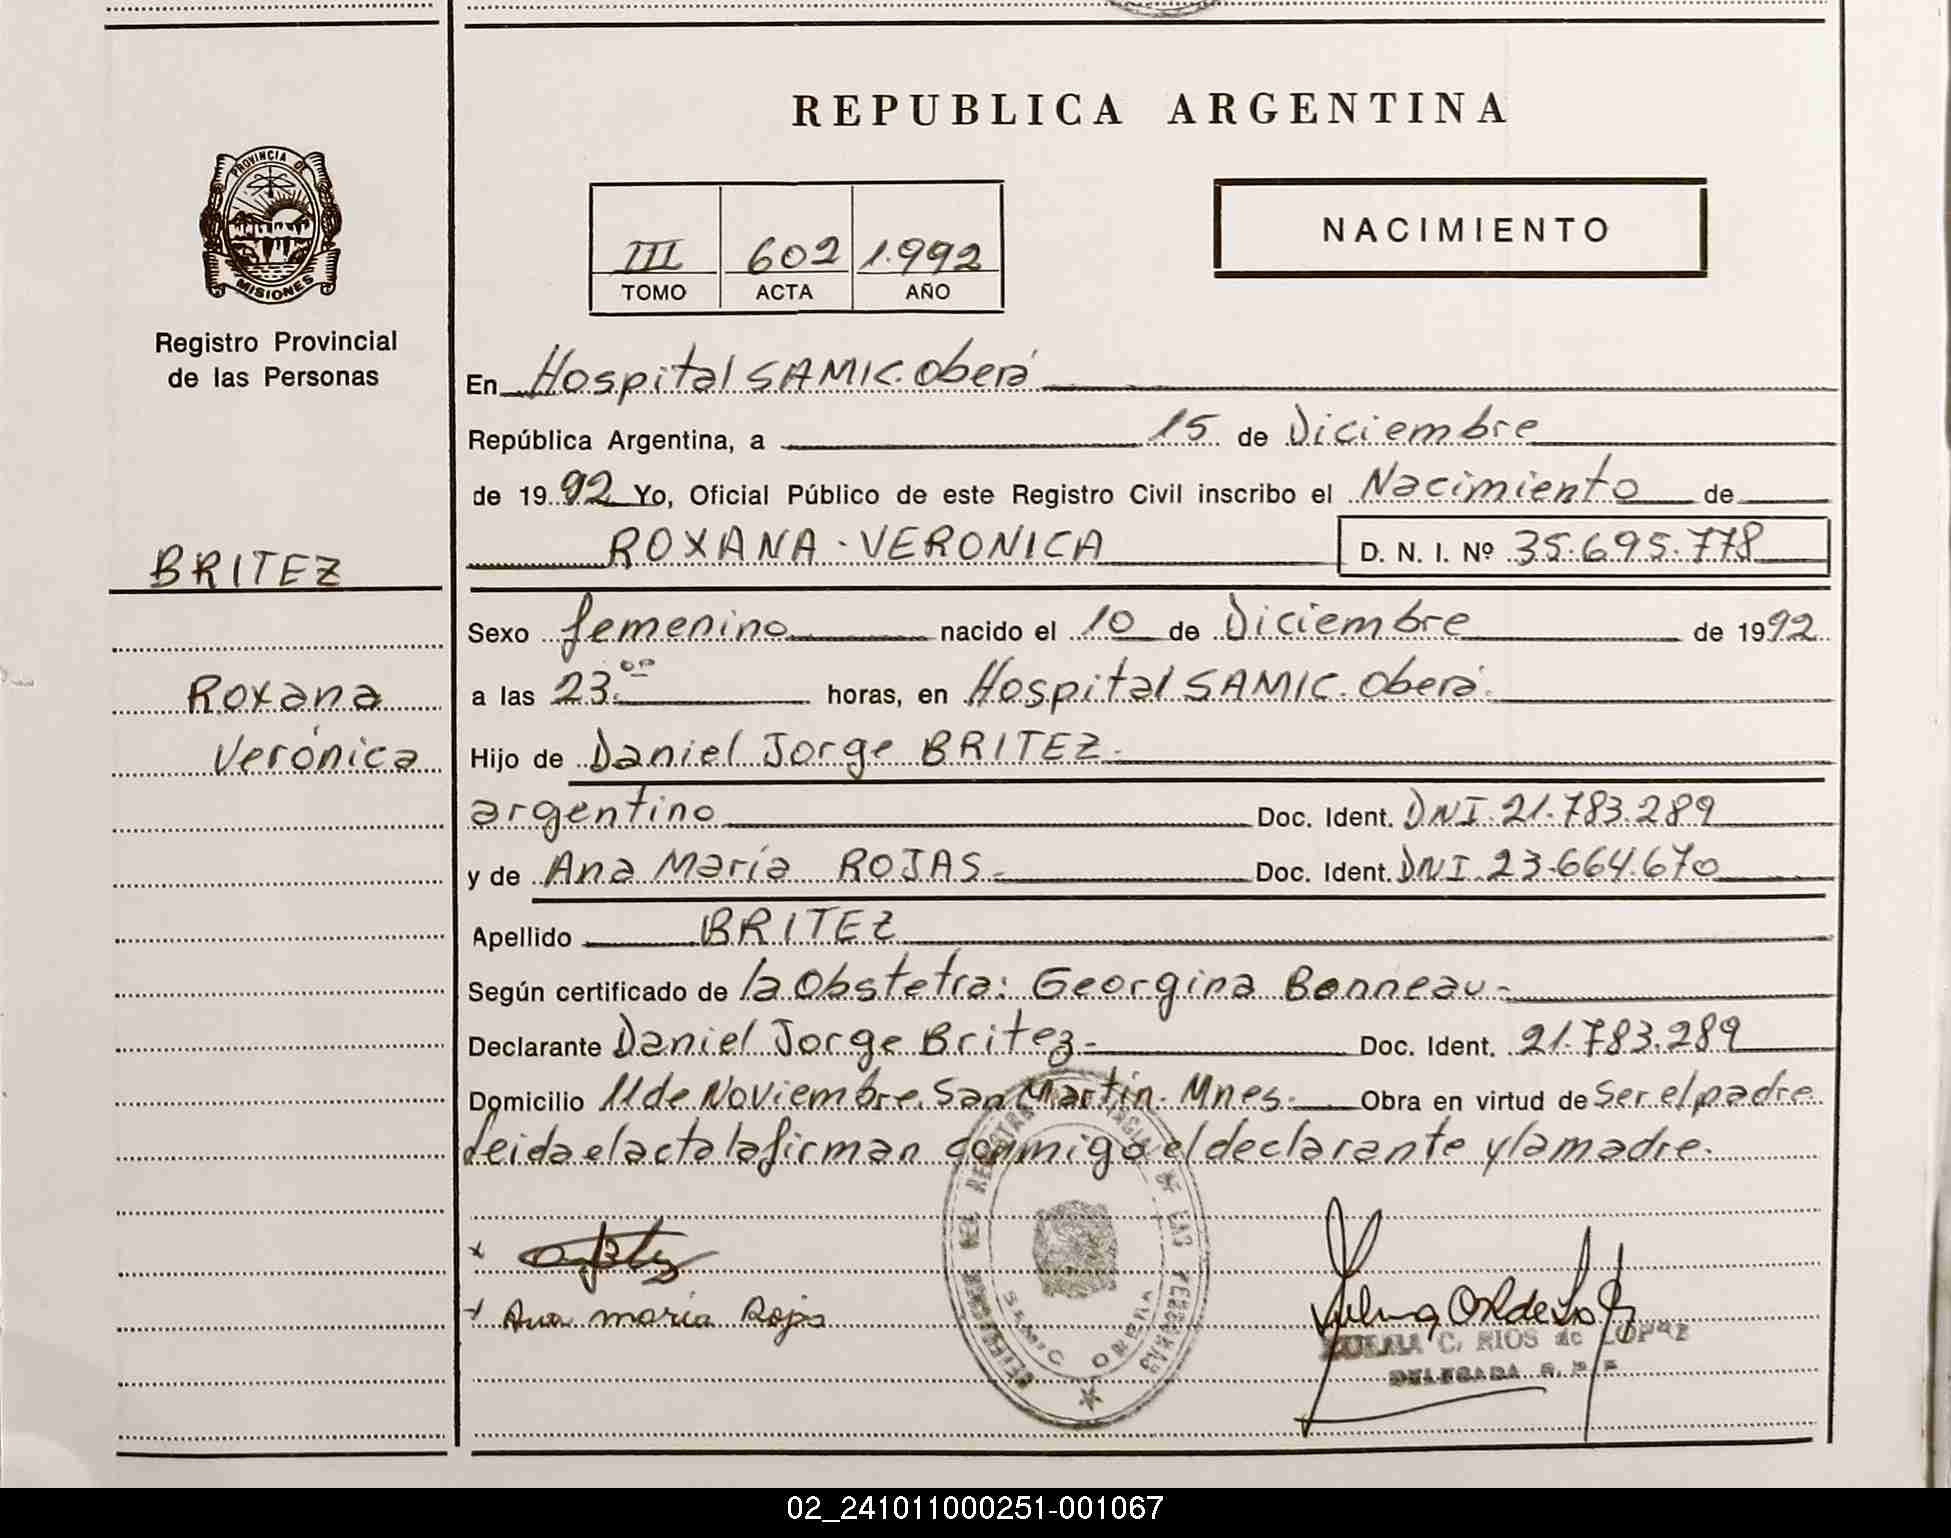 REPUBLICA ARGENTINA
PROVINCIA DE
MISIONES
Registro Provincial
de las Personas
III 602 1.992
TOMO ACTA AÑO
NACIMIENTO
En Hospital SAMIC. Oberá
República Argentina, a 15 de Diciembre
de 1992 Yo, Oficial Público de este Registro Civil inscribo el Nacimiento de
ROXANA - VERONICA D. N. I. Nº 35.695.778
BRITEZ
Roxana
Verónica
Sexo femenino nacido el 10 de Diciembre de 1992
a las 23.00 horas, en Hospital SAMIC. Oberá.
Hijo de Daniel Jorge BRITEZ.
argentino Doc. Ident. DNI. 21.783.289
y de Ana María ROJAS.- Doc. Ident. DNI. 23.664.670
Apellido BRITEZ
Según certificado de la Obstetra: Georgina Bonneau.-
Declarante Daniel Jorge Britez.- Doc. Ident. 21.783.289
Domicilio 11 de Noviembre. San Martín. Mnes. Obra en virtud de Ser el padre
leida el acta la firman conmigo el declarante y la madre.
x
x Ana maria Rojas
SAMIC OBERA
ZULMA C. RIOS de LOPEZ
DELEGADA
02_241011000251-001067